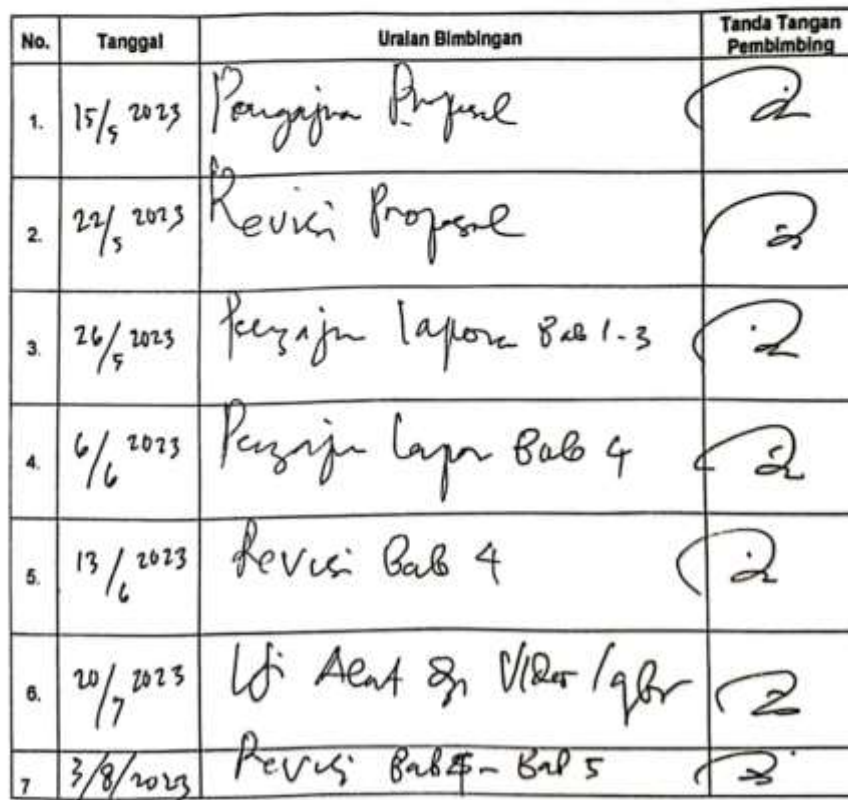 No. Tanggal Uraian Bimbingan Tanda Tangan Pembimbing
1. 15/5 2023 Pengajuan Proposal
2. 22/5 2023 Revisi Proposal
3. 26/5 2023 Pengajuan Laporan Bab 1-3
4. 6/6 2023 Pengajuan Laporan Bab 4
5. 13/6 2023 Revisi Bab 4
6. 20/7 2023 Uji Alat dg Video/gbr
7 3/8/2023 Revisi Bab 4 - Bab 5